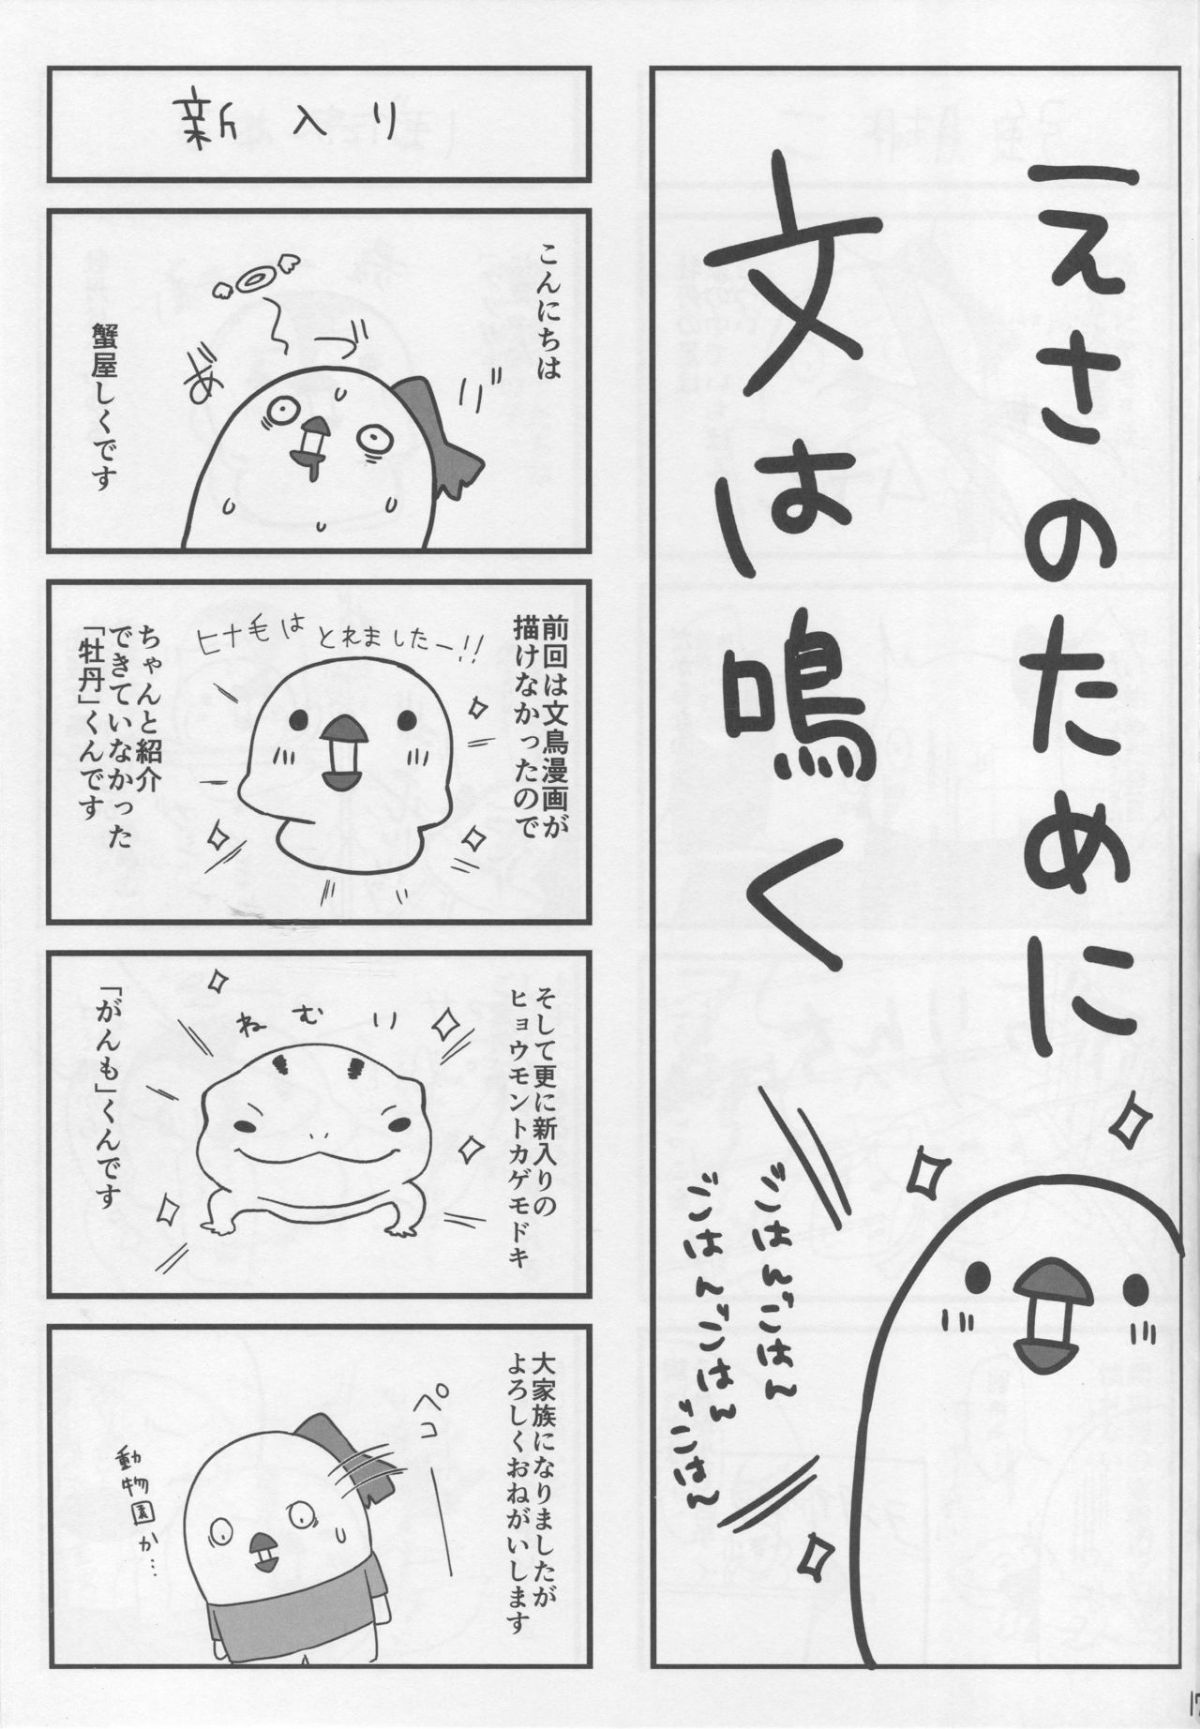 えさのために
文は鳴く
ごはんごはん
ごはんごはん
ごはん
新入り
こんにちは
蟹屋しくです
前回は文鳥漫画が
描けなかったので
ヒナ毛は とれましたー!!
ちゃんと紹介
できていなかった
「牡丹」くんです
そして更に新入りの
ヒョウモントカゲモドキ
ねむい
「がんも」くんです
大家族になりましたが
よろしくおねがいします
ペコ
動物園か…